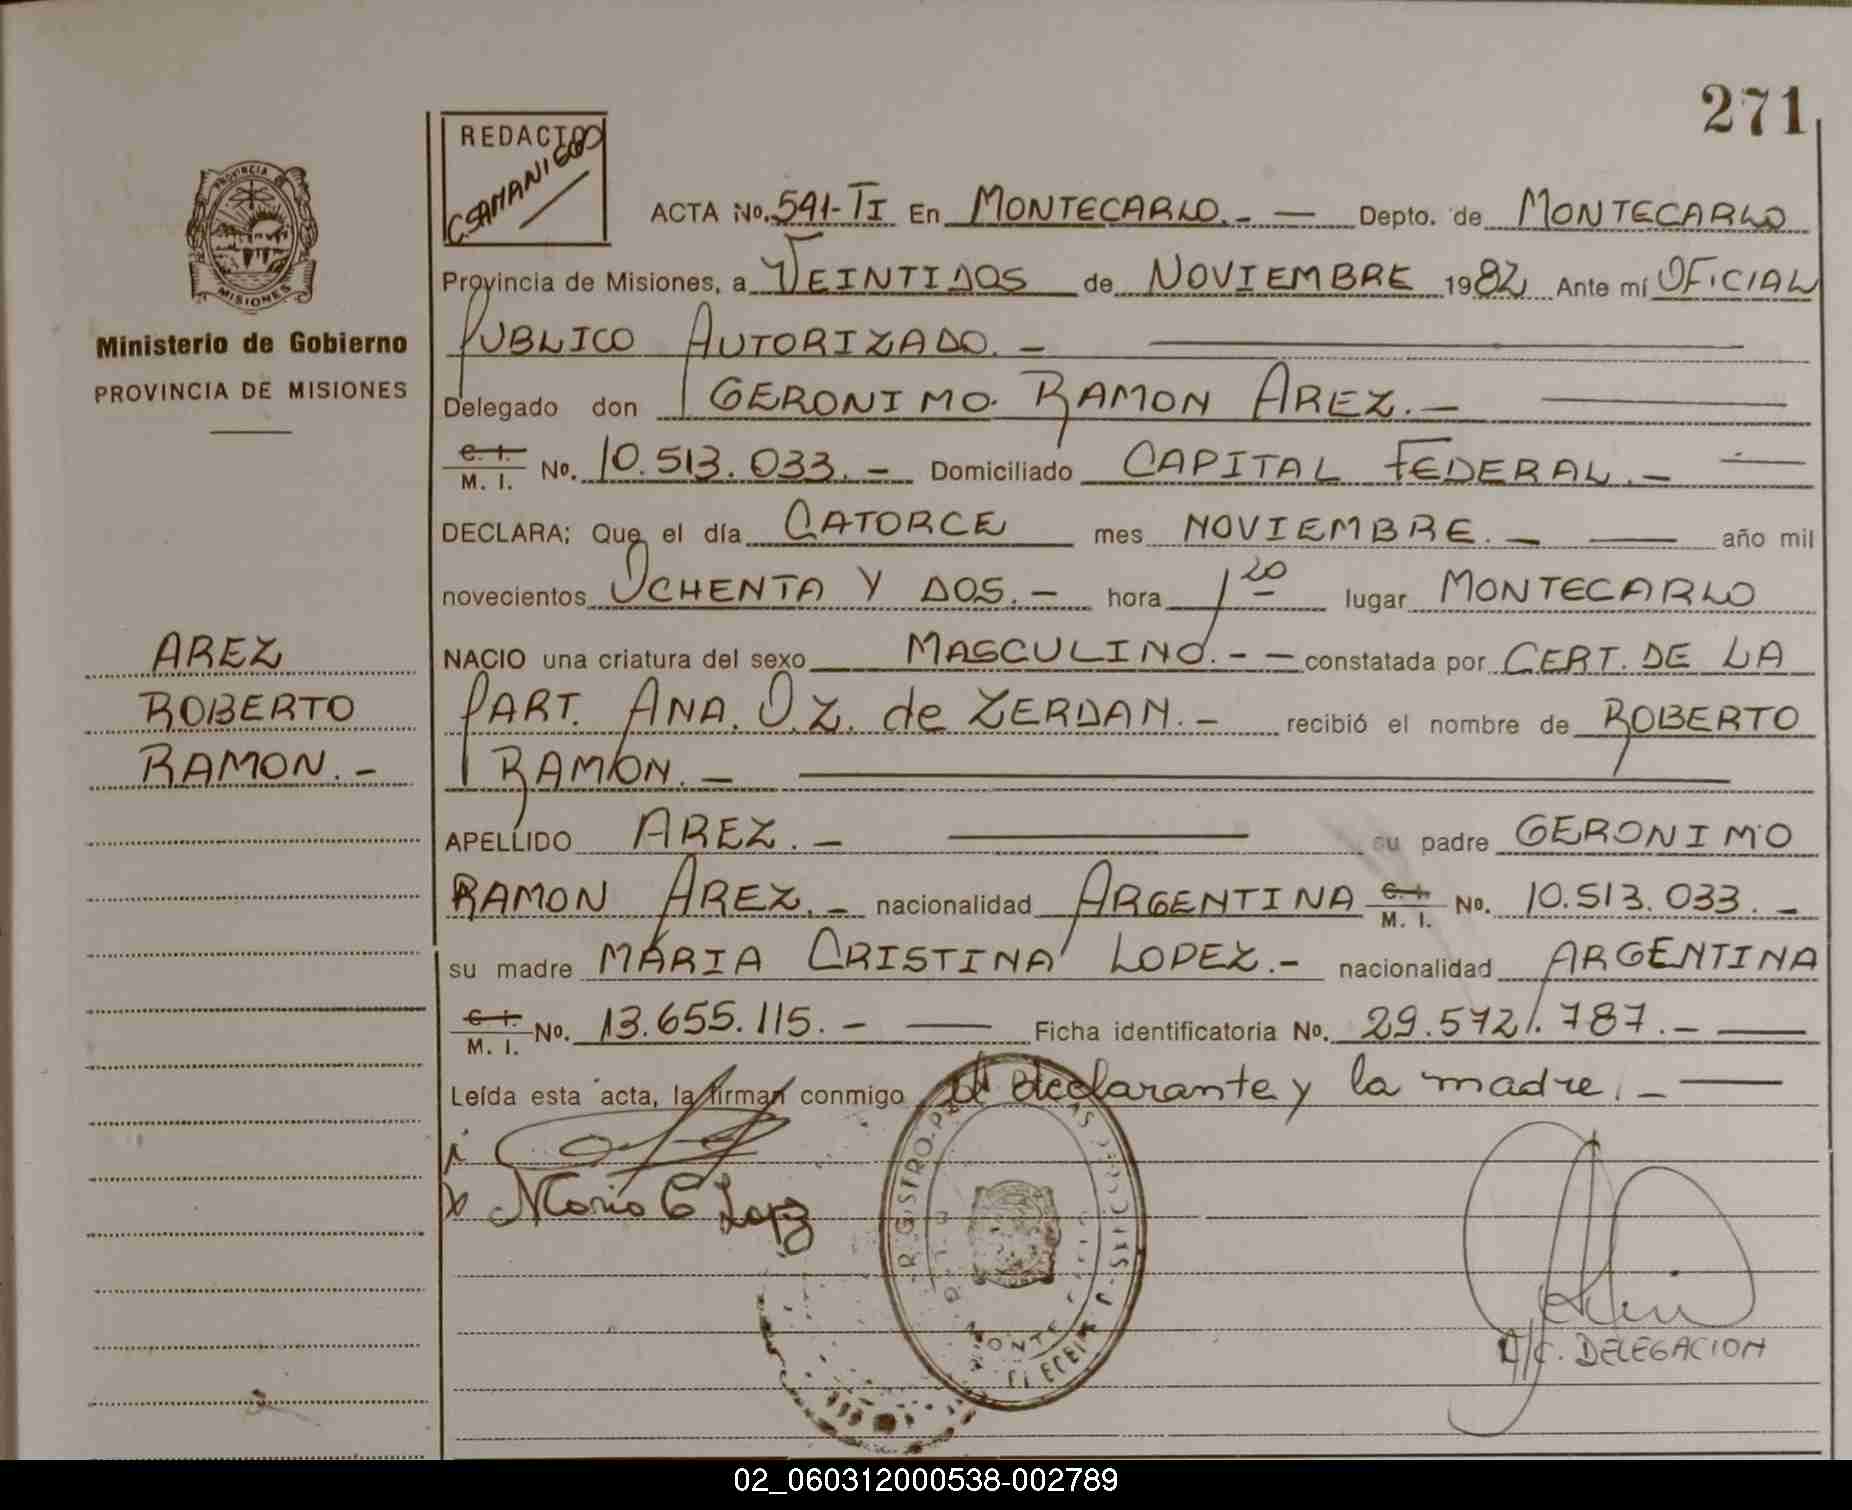 271
REDACTOR
CSAMANIEGO
ACTA No. 541-TI En MONTECARLO.- — Depto. de MONTECARLO
Provincia de Misiones, a VEINTIDOS de NOVIEMBRE 1982 Ante mí OFICIAL
PUBLICO AUTORIZADO. —
Ministerio de Gobierno
PROVINCIA DE MISIONES
Delegado don GERONIMO RAMON AREZ. —
C. I. / M. I. No. 10.513.033. - Domiciliado CAPITAL FEDERAL. —
DECLARA; Que el día CATORCE mes NOVIEMBRE. — año mil
novecientos OCHENTA Y DOS. - hora 1 20 lugar MONTECARLO
NACIO una criatura del sexo MASCULINO. - - constatada por CERT. DE LA
PART. ANA. O. Z. de ZERDAN. - recibió el nombre de ROBERTO
RAMON. —
AREZ
ROBERTO
RAMON. -
APELLIDO AREZ. — su padre GERONIMO
RAMON AREZ. - nacionalidad ARGENTINA C. I. / M. I. No. 10.513.033. -
su madre MARIA CRISTINA LOPEZ. - nacionalidad ARGENTINA
C. I. / M. I. No. 13.655.115. - — Ficha identificatoria No. 29.572/.787. - —
Leída esta acta, la firman conmigo el declarante y la madre. - —
Maria C Lopez
A/C. DELEGACION
02_060312000538-002789